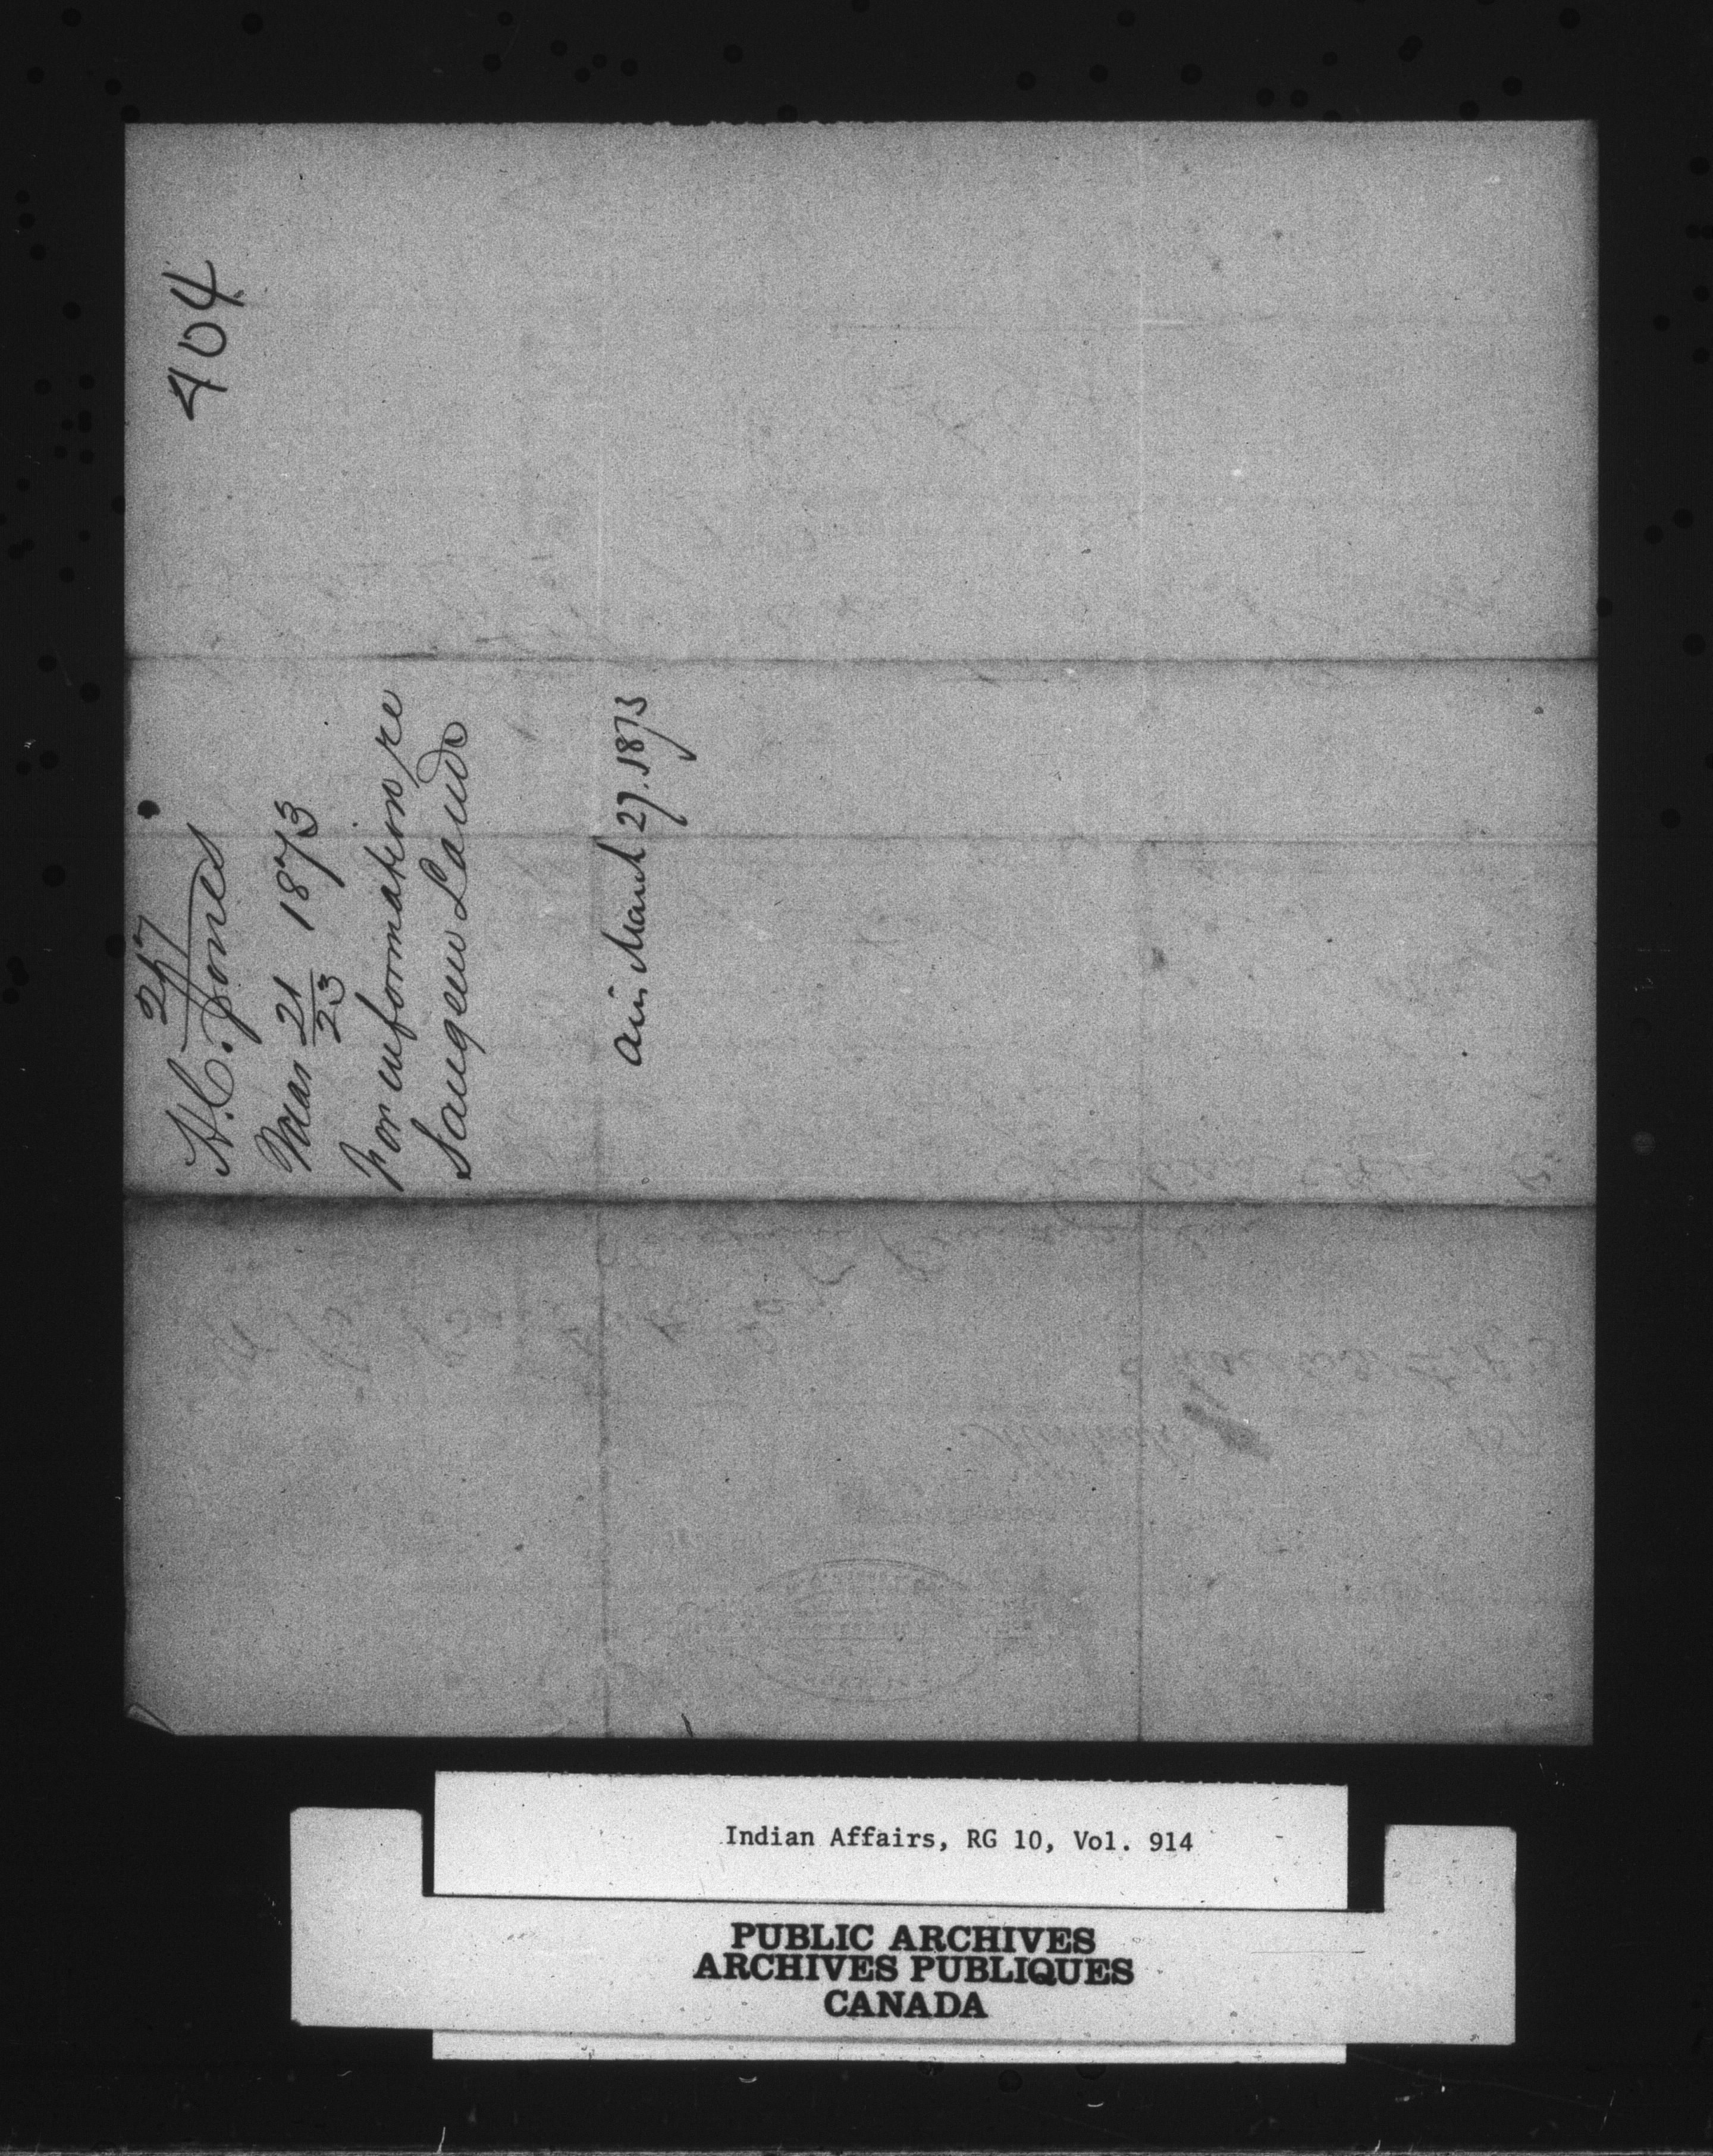 404
257
H.C. Jones
Mar 21/23 1873
For information re
Saugeen Lands
March 27. 1873
Indian Affairs, RG 10, Vol. 914
PUBLIC ARCHIVES
ARCHIVES PUBLIQUES
CANADA